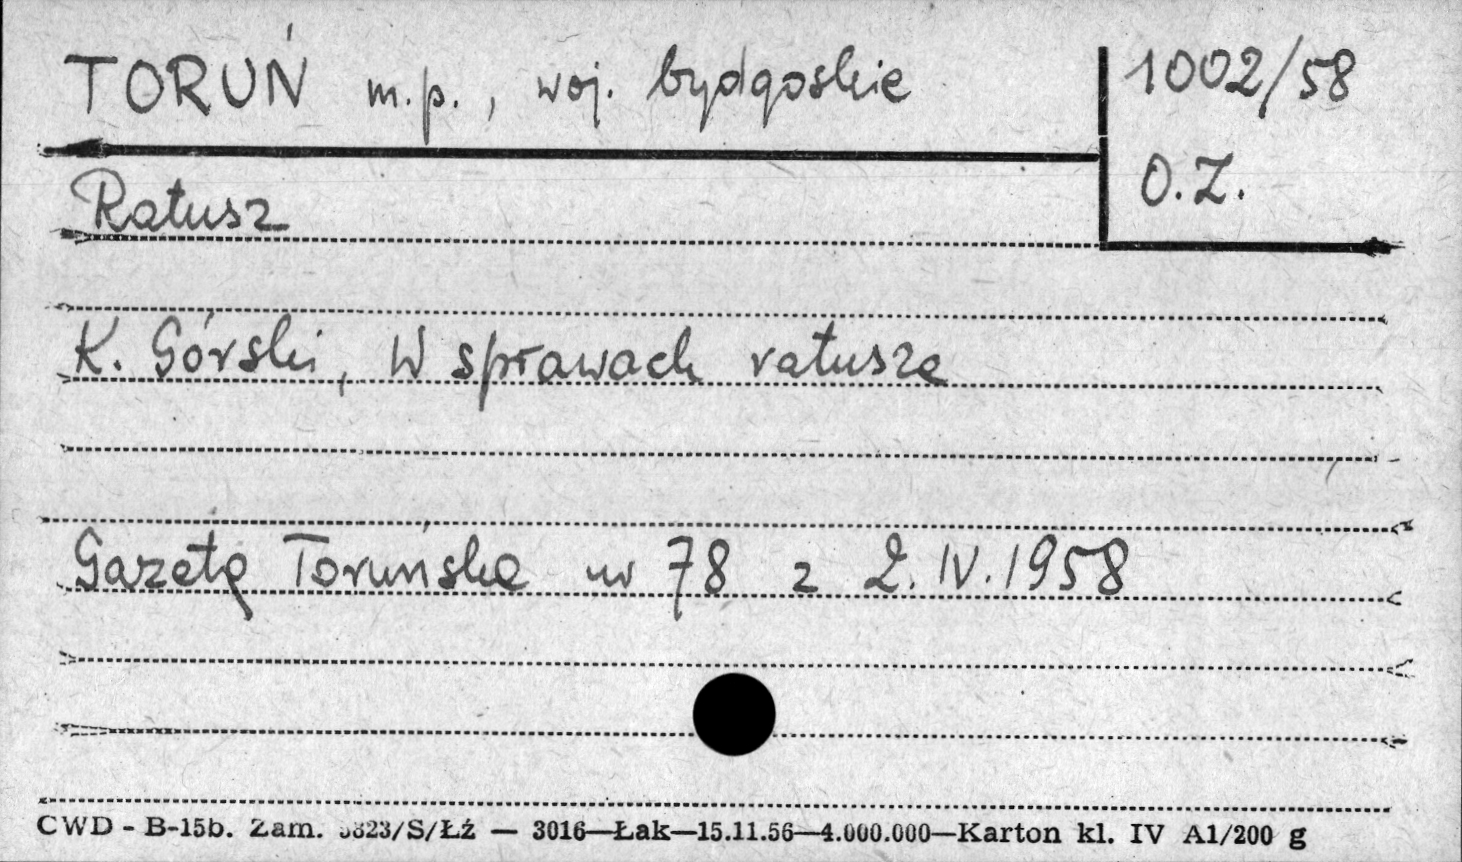 TORUŃ m.p., woj. bydgoskie
1002/58
O.Z.
Ratusz
K. Górski, W sprawach ratusza
Gazeta Toruńska nr 78 z 2.IV.1958
CWD - B-15b. Zam. 5823/S/Łź — 3016—Łak—15.11.56—4.000.000—Karton kl. IV A1/200 g